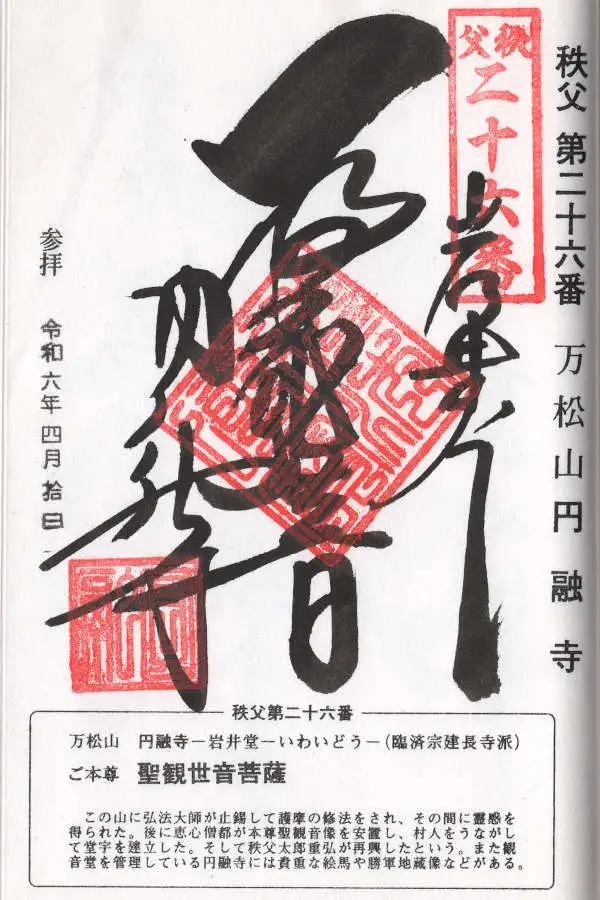 秩父 第二十六番 万松山円融寺
秩父
二十六番
岩井堂
聖観世音
円融寺
参拝 令和六年四月拾日
秩父第二十六番
万松山 円融寺ー岩井堂ーいわいどうー(臨済宗建長寺派)
ご本尊 聖観世音菩薩
この山に弘法大師が止錫して護摩の修法をされ、その間に霊感を
得られた。後に恵心僧都が本尊聖観音像を安置し、村人をうながし
て堂宇を建立した。そして秩父太郎重弘が再興したという。また観
音堂を管理している円融寺には貴重な絵馬や勝軍地蔵像などがある。